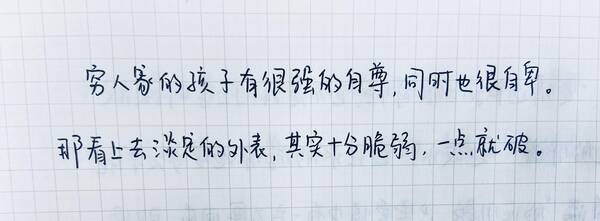 穷人家的孩子有很强的自尊,同时也很自卑。
那看上去淡定的外表,其实十分脆弱,一点就破。